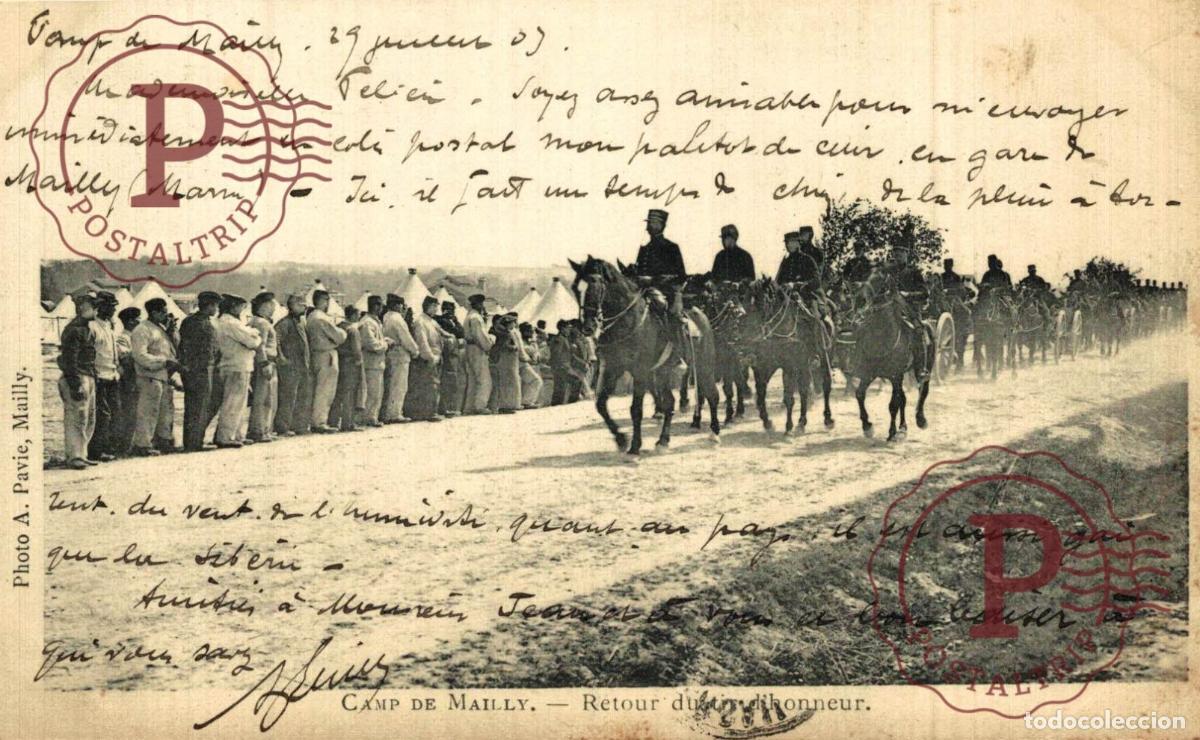 Camp de Mailly. 29 juillet 03.
Mademoiselle Félicie. Soyez assez aimable pour m'envoyer
immédiatement en colis postal mon paletot de cuir, en gare de
Mailly (Marne) - Ici, il fait un temps de chien, de la pluie à tor-
rent. du vent. de l'humidité, quant au pays, il est aussi gai
que la Sibérie -
Amitiés à Monsieur Jean et à vous et bon baiser à
qui vous savez
CAMP DE MAILLY. — Retour du tir d'honneur.
Photo A. Pavie, Mailly.
P
POSTALTRIP
P
POSTALTRIP
todocoleccion